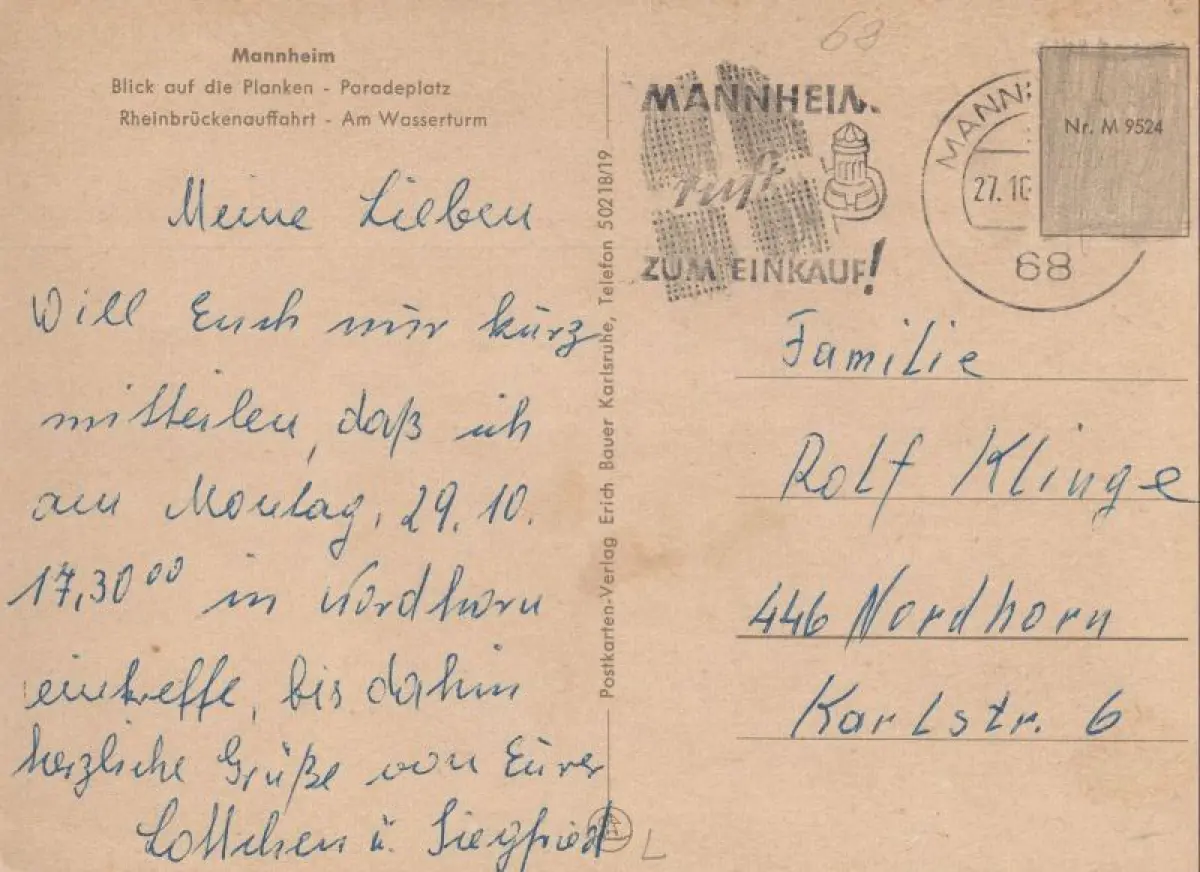 Mannheim
Blick auf die Planken - Paradeplatz
Rheinbrückenauffahrt - Am Wasserturm
Meine Lieben
Will Euch nur kurz
mitteilen, daß ich
am Montag, 29. 10.
17,30 00 in Nordhorn
eintreffe, bis dahin
herzliche Grüße von Eurer
Lottchen u. Siegfried
Postkarten-Verlag Erich Bauer Karlsruhe, Telefon 50218/19
68
MANNHEIM
ruft
ZUM EINKAUF!
MANNH
27.10
68
Nr. M 9524
Familie
Rolf Klinge
446 Nordhorn
Karlstr. 6
L